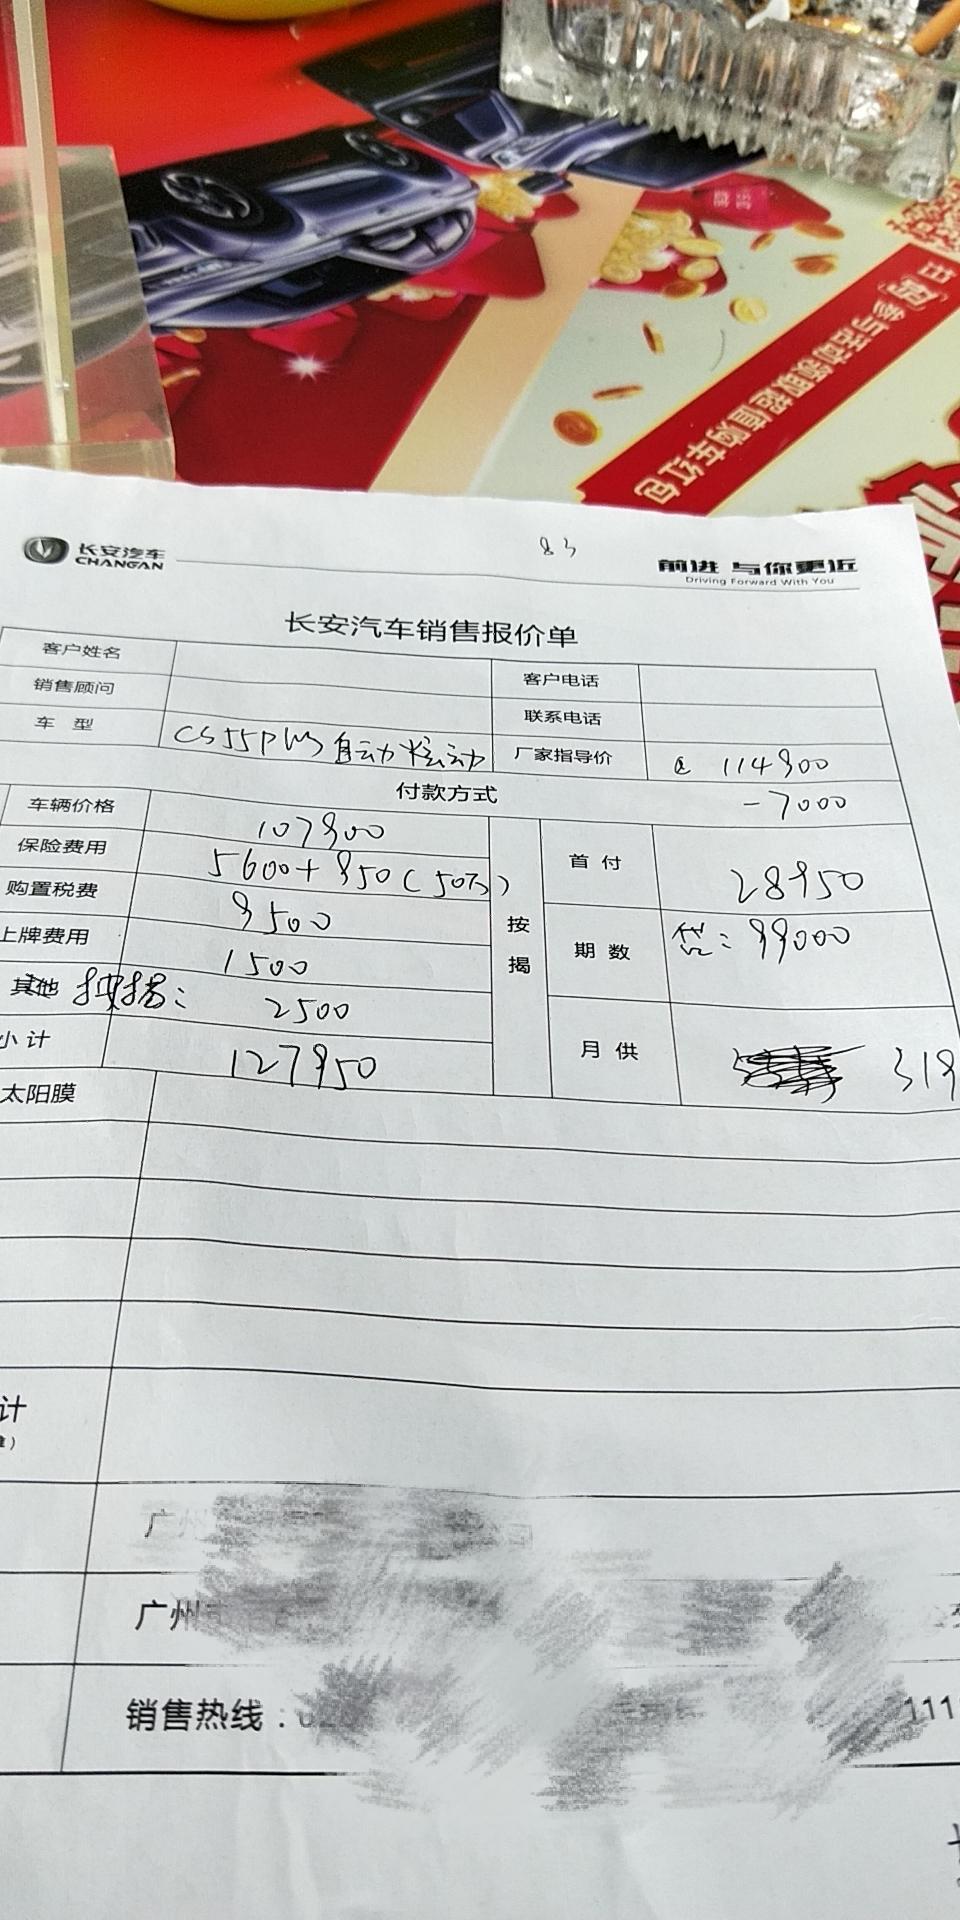 日间 参与活动领取超值购车红包
长安汽车
CHANGAN
83
前进 与你更近
Driving Forward With You
长安汽车销售报价单
客户姓名
客户电话
销售顾问
联系电话
车 型 CS55PLUS 自动炫动
厂家指导价 114900
付款方式 -7000
车辆价格 107900
保险费用 5600+950(50万)
购置税费 9500
上牌费用 1500
其他 按揭: 2500
小计 127950
按揭
首 付 28950
期 数 贷:99000
月 供 319
太阳膜
计
广州
广州
销售热线:
111